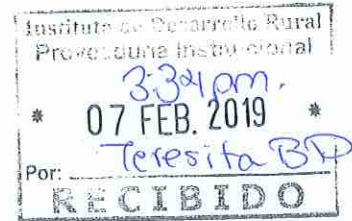 Instituto de Desarrollo Rural
Proveeduría Institucional
3:34 pm.
* 07 FEB. 2019 *
Por: Teresita
RECIBIDO